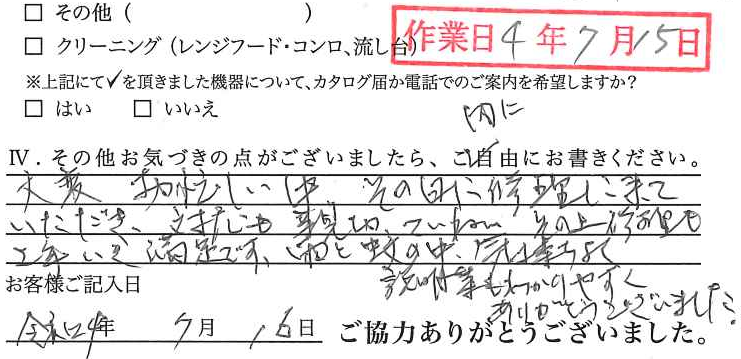 □ その他(　　　　　　　　)
□ クリーニング(レンジフード・コンロ、流し台)
作業日 4年7月15日
※上記にて✓を頂きました機器について、カタログ届か電話でのご案内を希望しますか?
□ はい　□ いいえ
内に
Ⅳ．その他お気づきの点がございましたら、ご自由にお書きください。
大変 お忙しい中 その日に修理に来て
いただき、親切 ていねい その上修理も
満足です、雨と 中、
説明等もわかりやすく
ありがとうございました。
お客様ご記入日
令和4年 7月 16日 ご協力ありがとうございました。